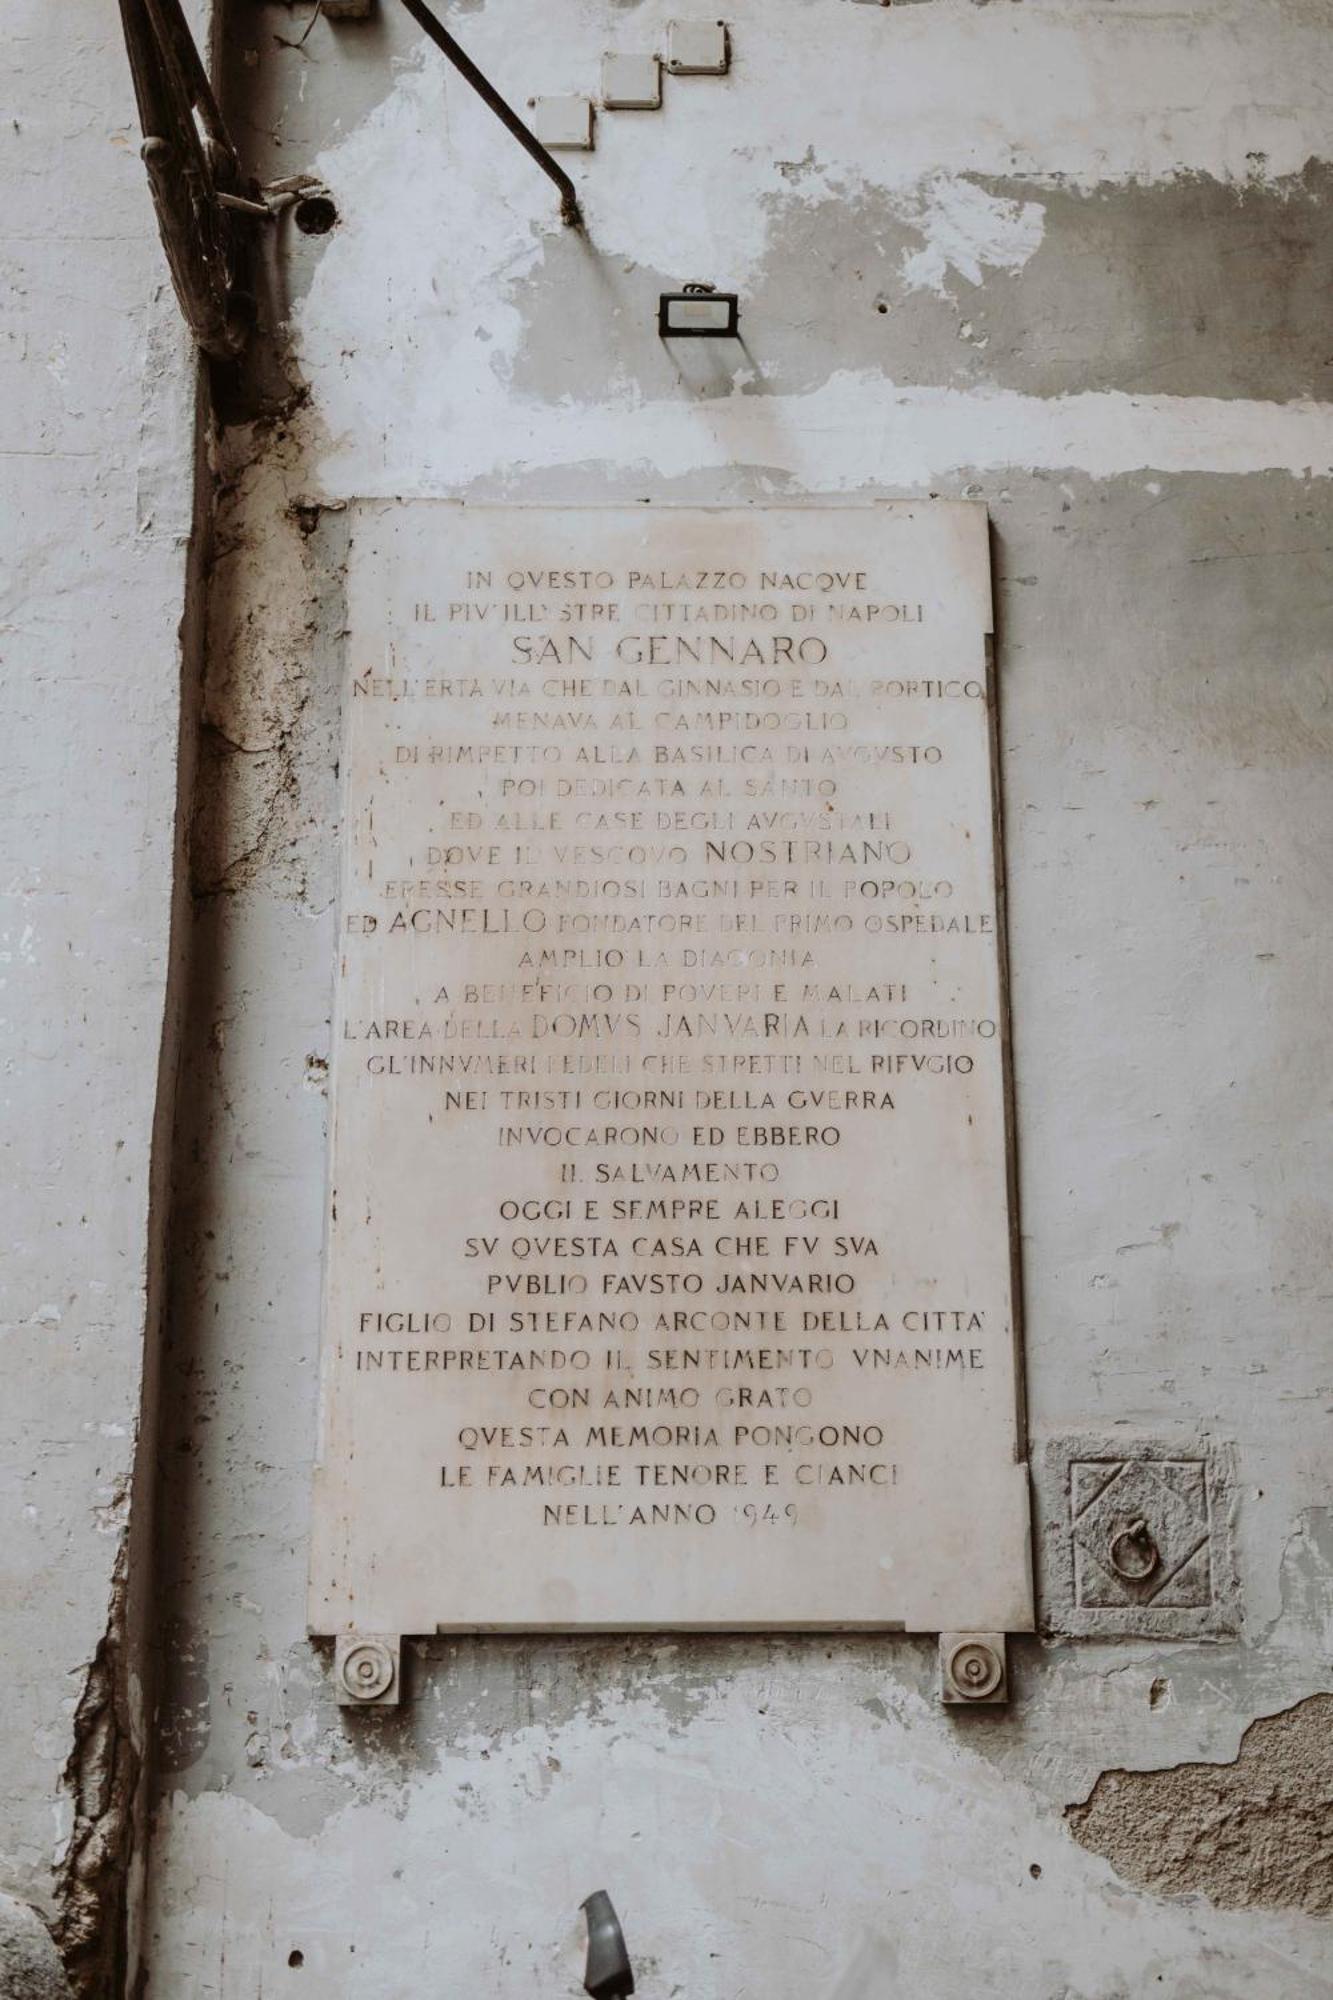 IN QVESTO PALAZZO NACQVE
IL PIV' ILLVSTRE CITTADINO DI NAPOLI
SAN GENNARO
NELL'ERTA VIA CHE DAL GINNASIO E DAL PORTICO
MENAVA AL CAMPIDOGLIO
DI RIMPETTO ALLA BASILICA DI AVGVSTO
POI DEDICATA AL SANTO
ED ALLE CASE DEGLI AVGVSTALI
DOVE IL VESCOVO NOSTRIANO
ERESSE GRANDIOSI BAGNI PER IL POPOLO
ED AGNELLO FONDATORE DEL PRIMO OSPEDALE
AMPLIO' LA DIACONIA
A BENEFICIO DI POVERI E MALATI
L'AREA DELLA DOMVS JANVARIA LA RICORDINO
GL'INNVMERI FEDELI CHE STRETTI NEL RIFVGIO
NEI TRISTI GIORNI DELLA GVERRA
INVOCARONO ED EBBERO
IL SALVAMENTO
OGGI E SEMPRE ALEGGI
SV QVESTA CASA CHE FV SVA
PVBLIO FAVSTO JANVARIO
FIGLIO DI STEFANO ARCONTE DELLA CITTA'
INTERPRETANDO IL SENTIMENTO VNANIME
CON ANIMO GRATO
QVESTA MEMORIA PONGONO
LE FAMIGLIE TENORE E CIANCI
NELL'ANNO 1949